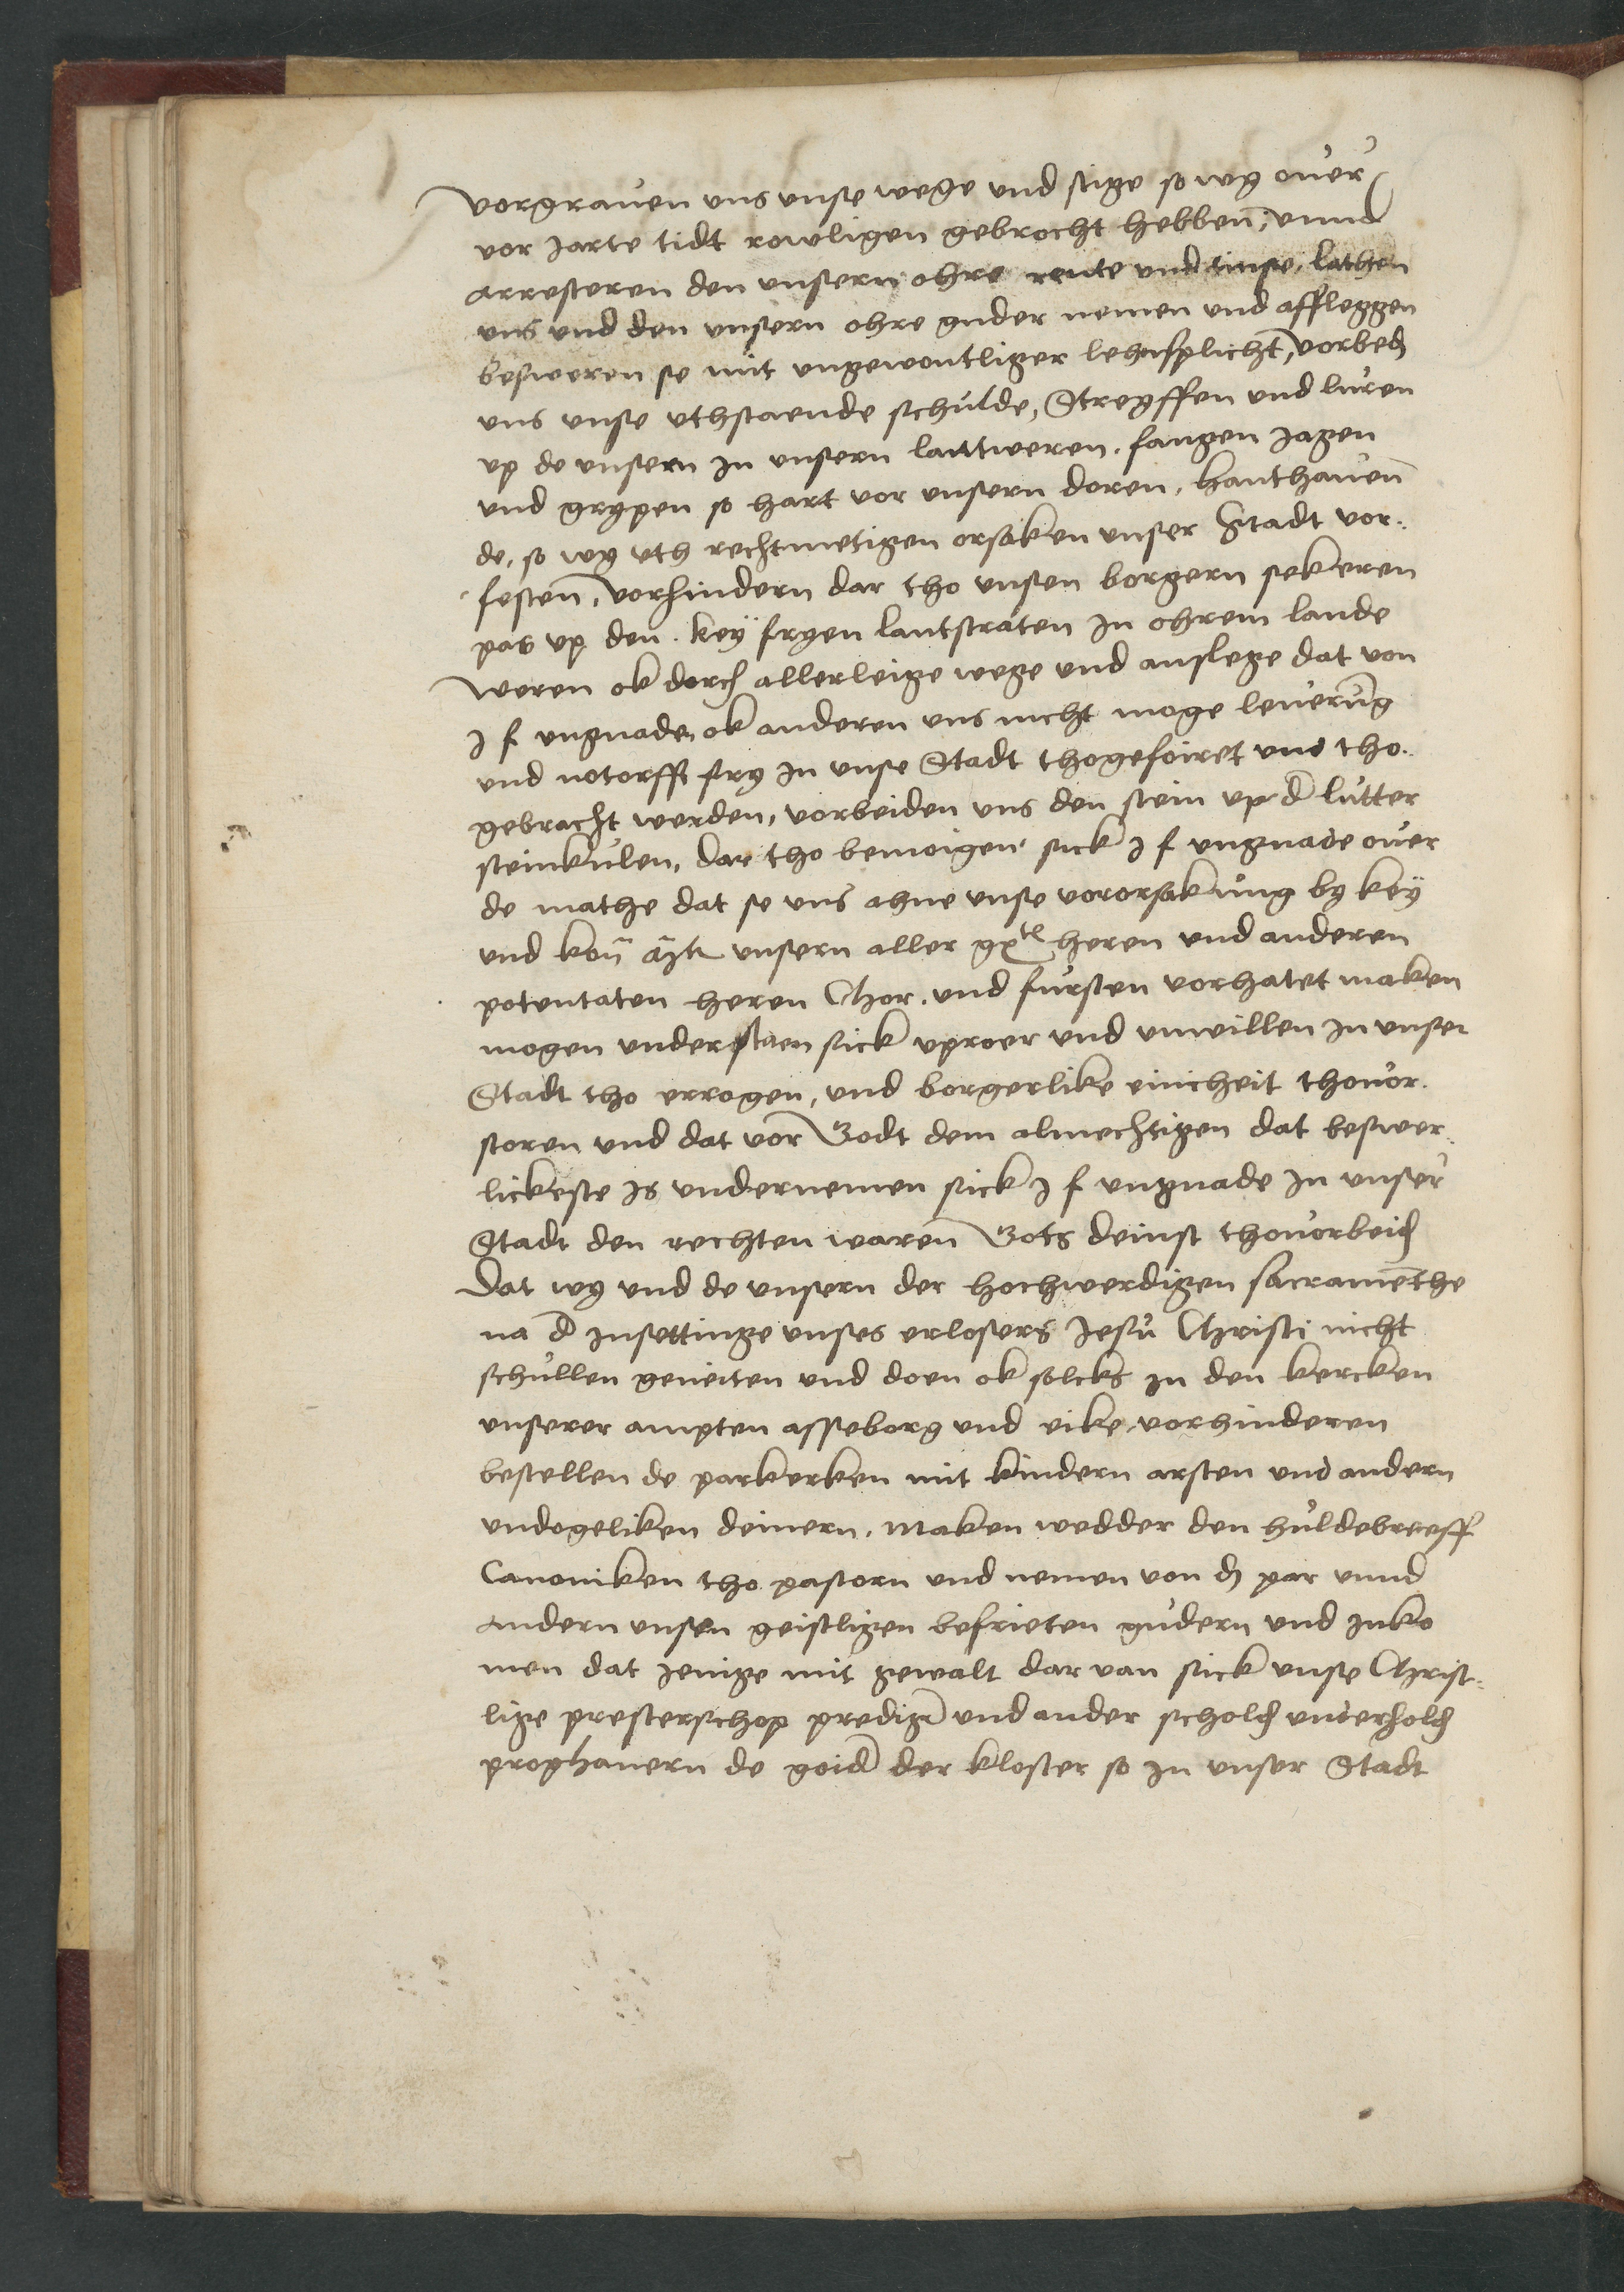 vorgrauen uns unse wege und stige so wy ouer
vor jarte tidt rowligen gebrocht hebben, vnnd
arresteren den unsern ohre rente und tinse, lathen
uns und den unsern ohre guder nemen und affleggen
besweren se mit ungewontliger lehnsplicht, vorbed
uns unse uthstaende schulde, Streyffen und luren
up de unsern in unsern lantweren, fangen jagen
und grypen so hart vor unsern doren, hanthauen
de, so wy uth rechtmetigen orsaken unser Stadt vor-
festen, vorhindern dar tho unsen borgern sekeren
pas up den key fryen lantstraten in ohrem lande
Weren ok dorch allerleige wege und anslege dat von
J f ungnade ok anderen uns nicht moge leuerung
und notorfft fry in unse Stadt thogefoiret und tho-
gebracht werden, vorbeiden uns den stein up d lutter
steinkulen, dar tho bemoigen sick J f ungnade ouer
de mathe dat se uns ahne unse vororsakung by key
und kon unsern aller heren und anderen
potentaten heren Chor. und fursten vorhatet maken
mogen understaen sick uproer und unwillen in unser
Stadt tho errogen, und borgerlike einicheit thouor-
storen und dat vor Godt dem almechtigen dat beswer-
lickeste is undernemen sick J f ungnade in unser
Stadt den rechten waren Gots deinst thouorbeid
Dat wy und de unsern der hochwerdigen sacramenthe
na d insettinge unses erlosers Jesu Christi nicht
schullen geneiten und doen ok solcks in den kercken
unserer ampten asseborg und eike vorhinderen
bestellen de parkerken mit kindern arsten und andern
undogeliken deinern. Maken wedder den huldebreeff
Canoniken tho pastorn und nemen von d par vnnd
andern unsen geistligen befrieten gudern und inko
men dat jenige mit gewalt dar van sick unse Christ-
lige presterschop prediger und ander schold underhold
prophanern de goid der kloster so in unser Stadt